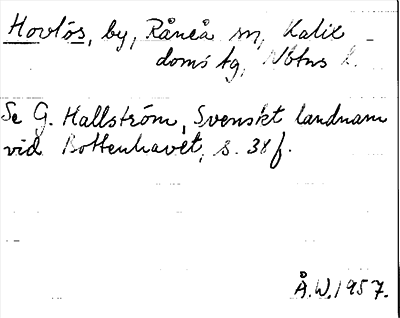 Hovlös, by, Råneå sn, Kalix
doms tg, Nbtns l.
Se G. Hallström, Svenskt landnam
vid Bottenhavet, s. 38 f.
Å.W. 1957.